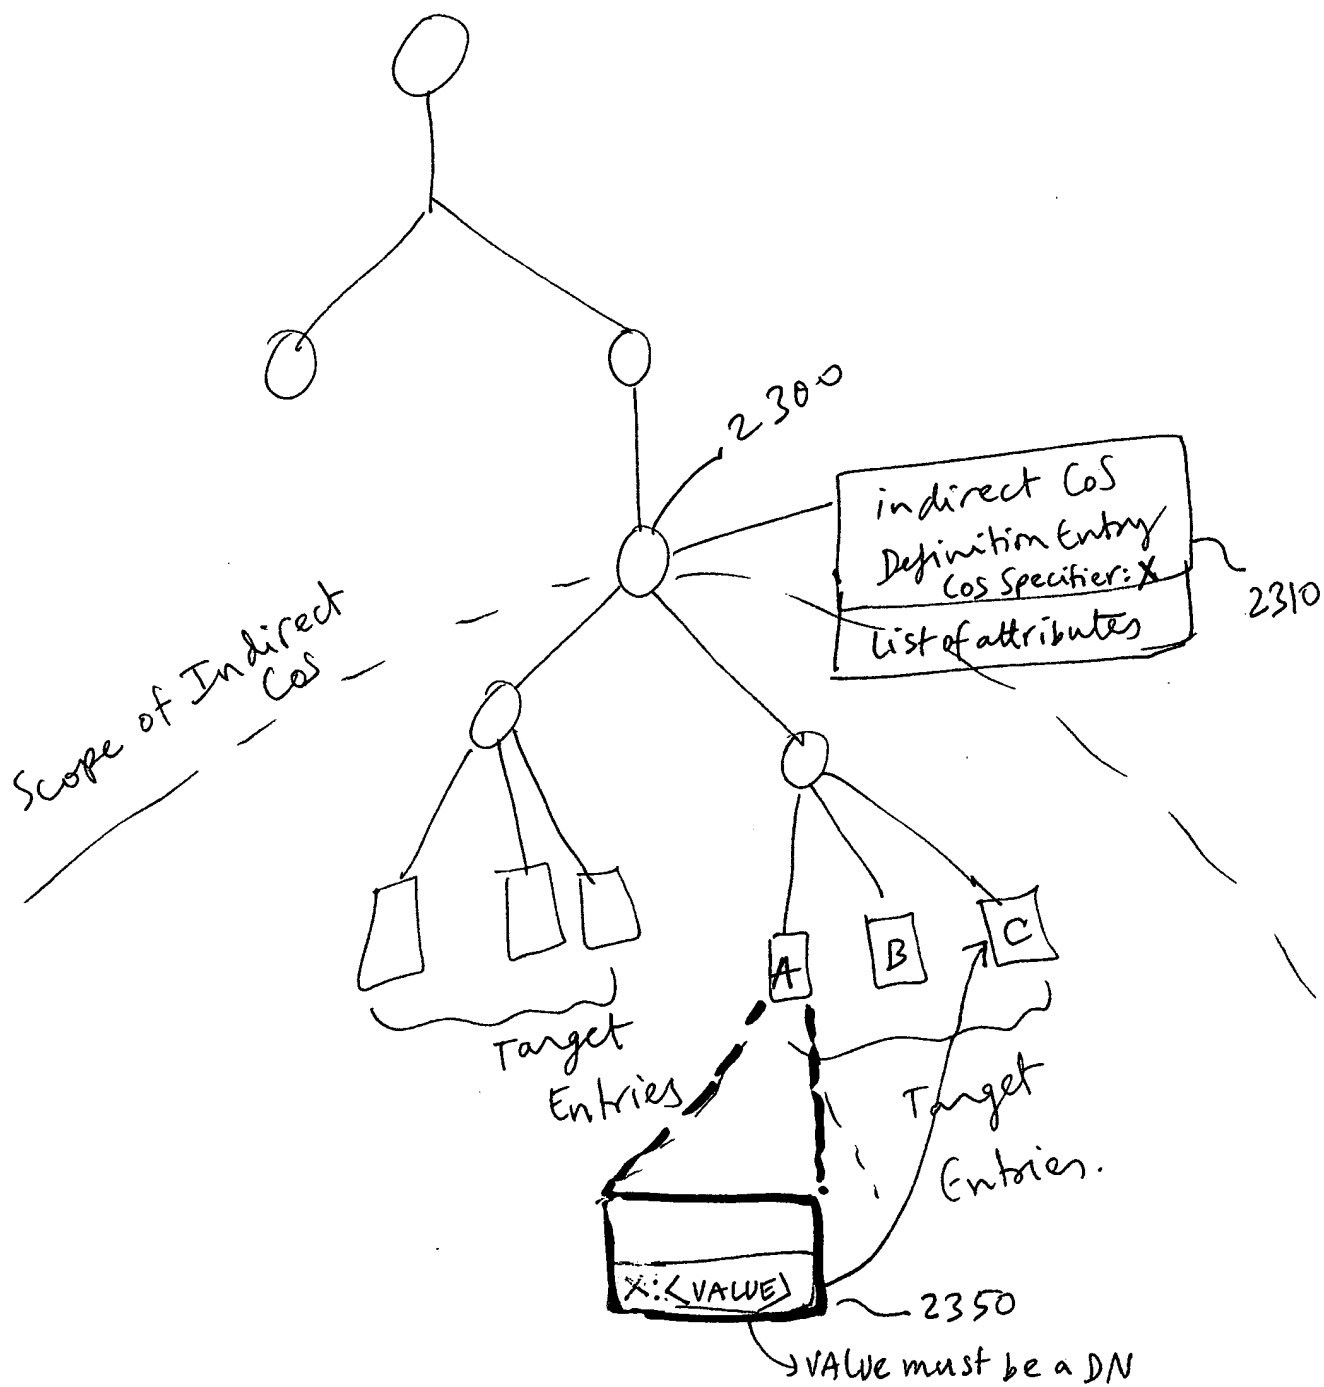 2300
indirect CoS
Definition Entry
CoS Specifier: X
List of attributes
2310
Scope of Indirect
CoS
A
B
C
Target
Entries
Target
Entries.
X: <VALUE>
2350
VALUE must be a DN